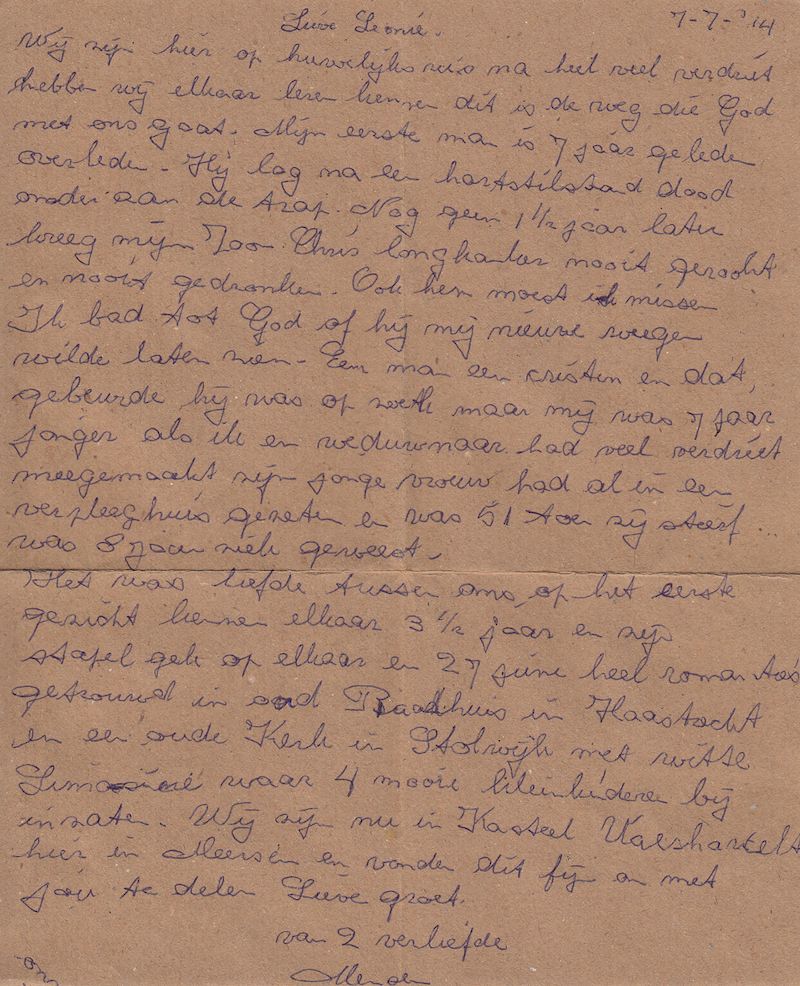 7-7-'14
Lieve Leonie.
Wij zijn hier op huwelijksreis na heel veel verdriet
hebben wij elkaar leren kennen dit is de weg die God
met ons gaat. Mijn eerste man is 7 jaar geleden
overleden. Hij lag na een hartstilstand dood
onder aan de trap. Nog geen 1 1/2 jaar later
kreeg mijn Zoon Chris longkanker nooit gerookt
en nooit gedronken. Ook hem moest ik missen
Ik bad tot God of hij mij nieuwe wegen
wilde laten zien. Een man een cristen en dat
gebeurde hij was op zoek maar mij was 7 jaar
jonger als ik en weduwnaar had veel verdriet
meegemaakt zijn jonge vrouw had al in een
verpleeghuis gezeten en was 51 toen zij stierf
was 8 jaar ziek geweest.
Het was liefde tussen ons op het eerste
gezicht kennen elkaar 3 1/2 jaar en zijn
stapel gek op elkaar en 27 june heel romantos
getrouwd in oud Raadhuis in Haastrecht
en een oude Kerk in Stolwijk met witte
waar 4 mooie kleinkinderen bij
in zaten. Wij zijn nu in Kasteel Vaeshartelt
hier in Meersen en vonden dit fijn om met
jou te delen Lieve groet.
van 2 verliefde